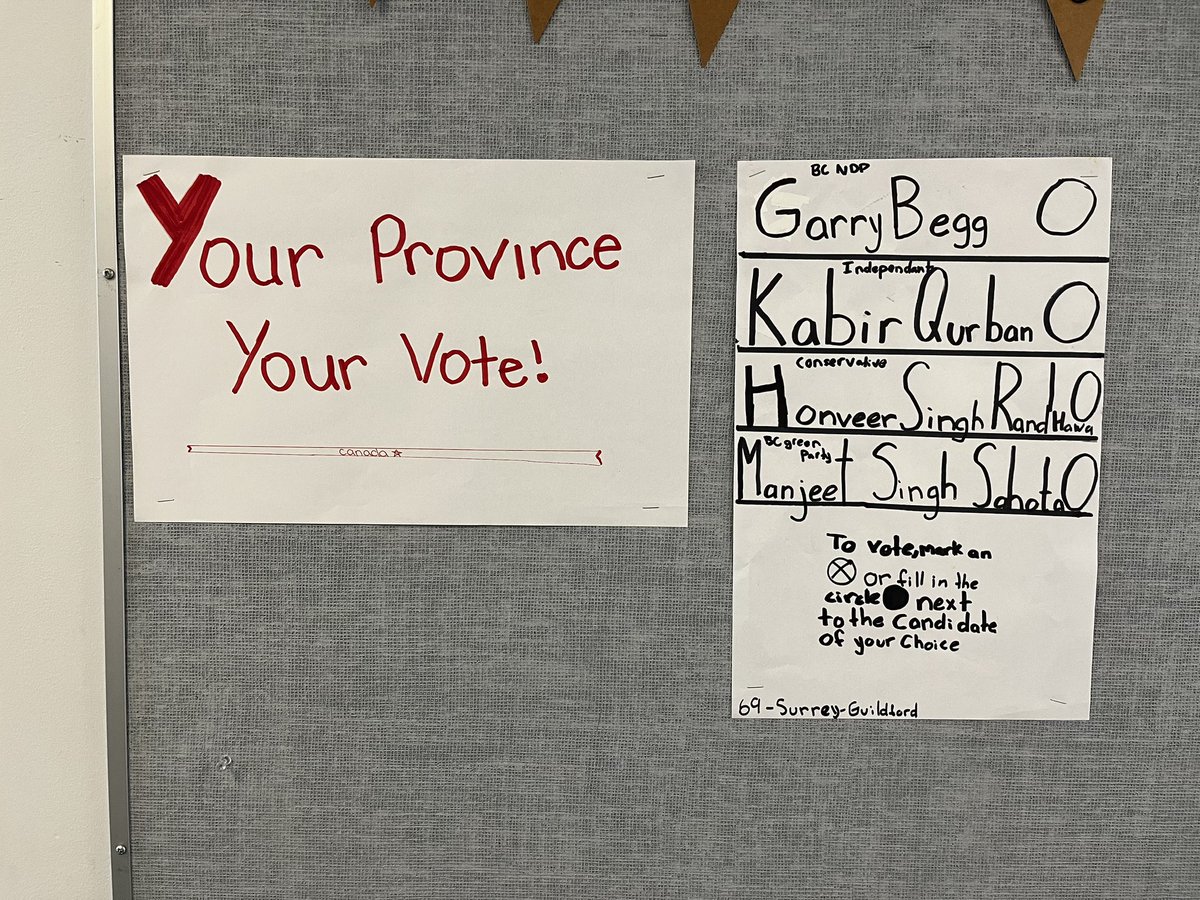 Your Province
Your Vote!
canada
BC NDP
Garry Begg
Independant
Kabir Qurban
conservative
Honveer Singh RandHawa
BC green
Party
Manjeet Singh Sahota
To vote, mark an
or fill in the
circle next
to the Candidate
of your Choice
69-Surrey-Guildford